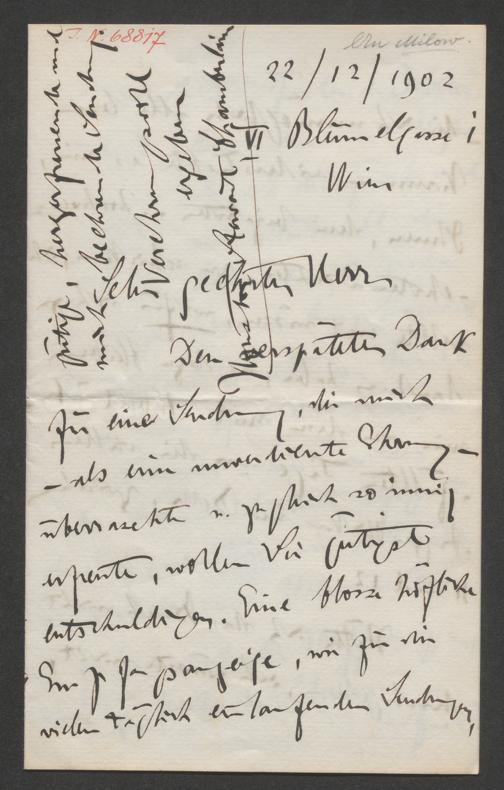 I. N. 68817
An Milow.
22/12/1902
VI Blümelgasse 1
Wien
Sehr geehrter Herr
Den verspäteten Dank
für eine Sendung, die mich
– als eine unverdiente Ehrung –
überraschte u. zugleich so innig
erfreute, wollen Sie gütigst
entschuldigen. Eine blosse höfliche
Empfangsanzeige, wie für die
vielen täglich einlaufenden Sendungen,
gütige, herzerfreuende und
mich beehrende Sendung.
Verehrungsvoll
ergebene
Houston Stewart Chamberlain